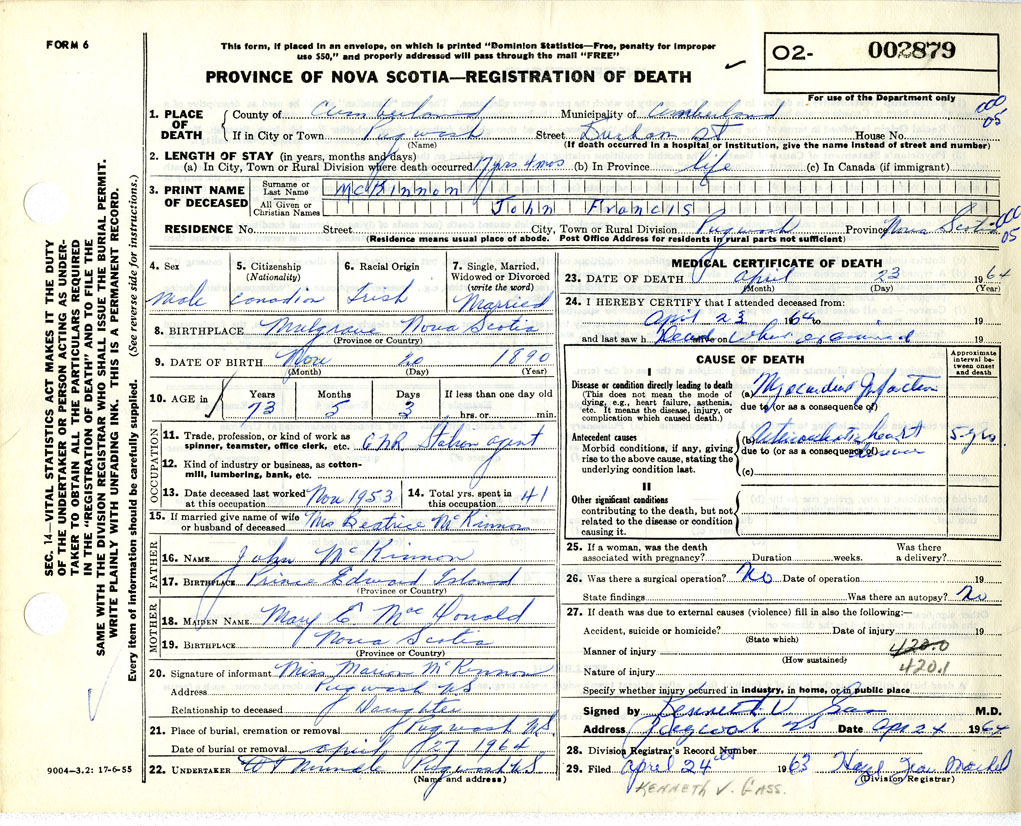 FORM 6
This form, if placed in an envelope, on which is printed "Dominion Statistics—Free, penalty for improper
use $50," and properly addressed will pass through the mail "FREE"
PROVINCE OF NOVA SCOTIA—REGISTRATION OF DEATH
O2- 002879
For use of the Department only
000
05
SEC. 14—VITAL STATISTICS ACT MAKES IT THE DUTY
OF THE UNDERTAKER OR PERSON ACTING AS UNDER-
TAKER TO OBTAIN ALL THE PARTICULARS REQUIRED
IN THE "REGISTRATION OF DEATH" AND TO FILE THE
SAME WITH THE DIVISION REGISTRAR WHO SHALL ISSUE THE BURIAL PERMIT.
WRITE PLAINLY WITH UNFADING INK. THIS IS A PERMANENT RECORD.
Every item of information should be carefully supplied. (See reverse side for instructions.)
1. PLACE OF DEATH
County of Cumberland Municipality of Cumberland
If in City or Town Pugwash Street Durham St House No.
(Name) (If death occurred in a hospital or institution, give the name instead of street and number)
2. LENGTH OF STAY (in years, months and days)
(a) In City, Town or Rural Division where death occurred 17 yrs 4 mos (b) In Province life (c) In Canada (if immigrant)
3. PRINT NAME OF DECEASED
Surname or Last Name McKinnon
All Given or Christian Names John Francis
RESIDENCE No. Street City, Town or Rural Division Pugwash Province Nova Scotia
000
05
(Residence means usual place of abode. Post Office Address for residents in rural parts not sufficient)
4. Sex 5. Citizenship (Nationality) 6. Racial Origin 7. Single, Married, Widowed or Divorced (write the word)
Male Canadian Irish Married
8. BIRTHPLACE Mulgrave Nova Scotia
(Province or Country)
9. DATE OF BIRTH Nov 20 1890
(Month) (Day) (Year)
10. AGE in Years Months Days If less than one day old
73 5 3 hrs. or min.
OCCUPATION
11. Trade, profession, or kind of work as spinner, teamster, office clerk, etc. CNR Station agent
12. Kind of industry or business, as cotton-mill, lumbering, bank, etc.
13. Date deceased last worked at this occupation Nov 1953 14. Total yrs. spent in this occupation 41
15. If married give name of wife or husband of deceased Mrs Beatrice McKinnon
FATHER
16. NAME John McKinnon
17. BIRTHPLACE Prince Edward Island
(Province or Country)
MOTHER
18. MAIDEN NAME Mary E. MacDonald
19. BIRTHPLACE Nova Scotia
(Province or Country)
20. Signature of informant Miss Marion McKinnon
Address Pugwash NS
Relationship to deceased Daughter
21. Place of burial, cremation or removal Pugwash N.S.
Date of burial or removal april 27 1964
22. UNDERTAKER Pugwash N.S
(Name and address)
9004—3.2: 17-6-55
MEDICAL CERTIFICATE OF DEATH
23. DATE OF DEATH April 23 1964
(Month) (Day) (Year)
24. I HEREBY CERTIFY that I attended deceased from:
April 23 1964 to 19
and last saw h alive on Dead when examined 19
CAUSE OF DEATH
Approximate interval between onset and death
I
Disease or condition directly leading to death
(This does not mean the mode of dying, e.g., heart failure, asthenia, etc. It means the disease, injury, or complication which caused death.)
(a) Myocardial Infarction
due to (or as a consequence of)
Antecedent causes
Morbid conditions, if any, giving rise to the above cause, stating the underlying condition last.
(b) Arteriosclerotic heart disease 5 yrs.
due to (or as a consequence of)
(c)
II
Other significant conditions
contributing to the death, but not related to the disease or condition causing it.
25. If a woman, was the death associated with pregnancy? Duration weeks. Was there a delivery?
26. Was there a surgical operation? No Date of operation 19
State findings Was there an autopsy? No
27. If death was due to external causes (violence) fill in also the following:—
Accident, suicide or homicide? Date of injury 19
(State which)
Manner of injury 420.0
(How sustained)
420.1
Nature of injury
Specify whether injury occurred in industry, in home, or in public place
Signed by Kenneth V Gass M.D.
Address Pugwash NS Date Apr 24 1964
28. Division Registrar's Record Number
29. Filed April 24 1963 Hazel Jean
(Division Registrar)
KENNETH V. GASS.